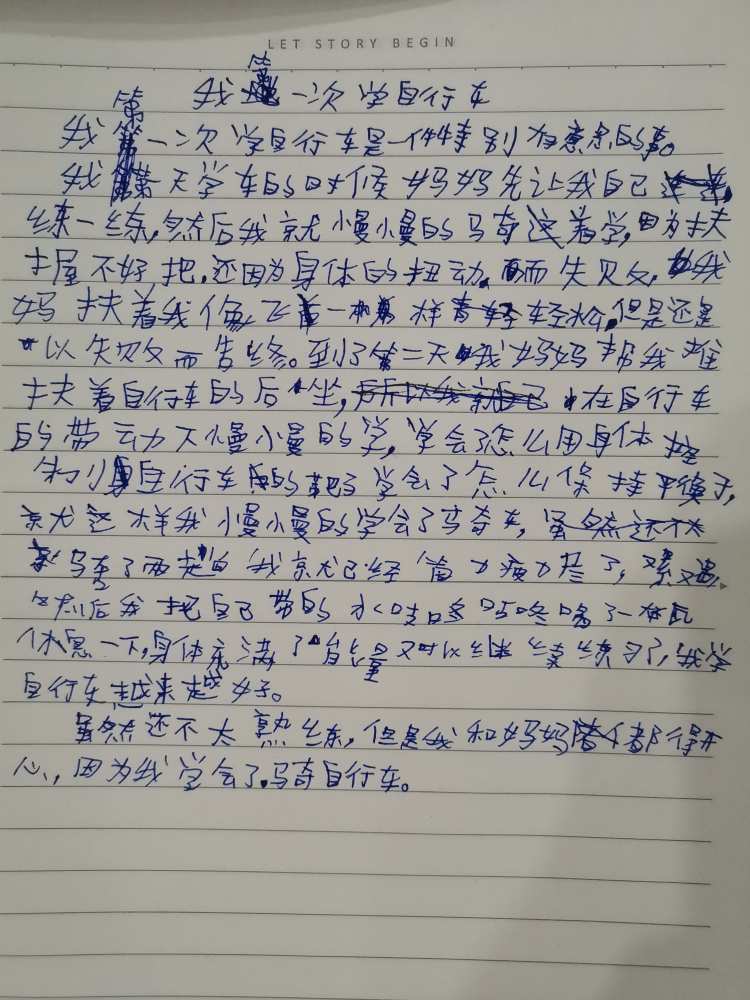 LET STORY BEGIN
我第一次学自行车
我第一次学自行车是一件特别有意思的事。
我第一天学车的时候妈妈先让我自己
练一练,然后我就慢慢的骑这着学,因为扶
不好把,还因为身体的扭动,而失败,我
妈扶着我像飞一样青轻轻松,但是还是
以失败而告终。到了第二天我妈妈帮我
扶着自行车的后坐,在自行车
的带动下慢慢的学,学会了怎么用身体控
制自行车的把子学会了怎么保持平衡了,
就这样我慢慢的学会了骑车,虽然还不太
骑了两我就已经筋力疲力尽了,又累又渴,
然后我把自己带的水咕咚咕咚喝了一瓶
休息一下,身体充满了能量又可以继续练习了,我学
自行车越来越好。
虽然还不太熟练,但是我和妈妈都得开
心,因为我学会了骑自行车。